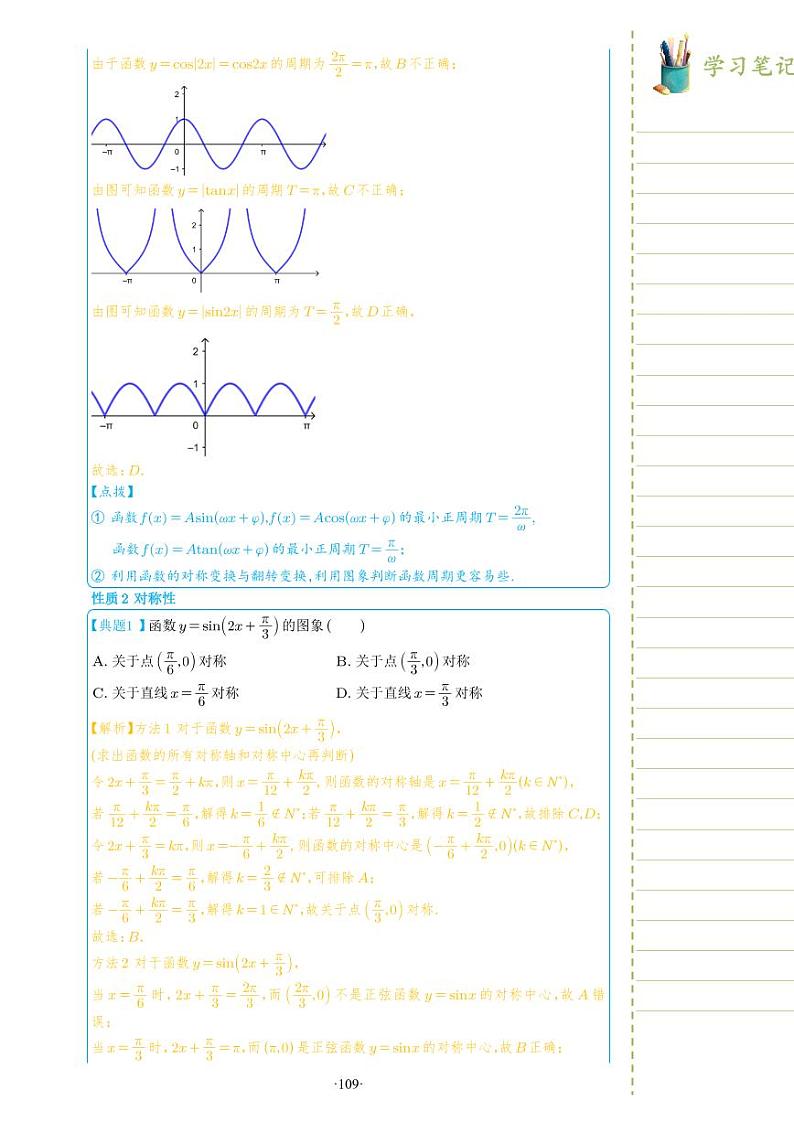 由于函数 y=cos|2x|=cos2x 的周期为 2π/2=π,故 B 不正确;
2
1
−π 0 π
−1
由图可知函数 y=|tanx| 的周期 T=π,故 C 不正确;
2
1
−π 0 π
由图可知函数 y=|sin2x| 的周期为 T=π/2,故 D 正确.
2
1
−π 0 π
−1
故选:D.
【点拨】
① 函数 f(x)=Asin(ωx+φ),f(x)=Acos(ωx+φ) 的最小正周期 T=2π/ω,
函数 f(x)=Atan(ωx+φ) 的最小正周期 T=π/ω;
② 利用函数的对称变换与翻转变换,利用图象判断函数周期更容易些.
性质2 对称性
【典题1】函数 y=sin(2x+π/3) 的图象 ( )
A. 关于点 (π/6,0) 对称 B. 关于点 (π/3,0) 对称
C. 关于直线 x=π/6 对称 D. 关于直线 x=π/3 对称
【解析】方法1 对于函数 y=sin(2x+π/3),
(求出函数的所有对称轴和对称中心再判断)
令 2x+π/3=π/2+kπ,则 x=π/12+kπ/2, 则函数的对称轴是 x=π/12+kπ/2(k∈N*),
若 π/12+kπ/2=π/6,解得 k=1/6∉N*;若 π/12+kπ/2=π/3,解得 k=1/2∉N*,故排除 C,D;
令 2x+π/3=kπ,则 x=−π/6+kπ/2, 则函数的对称中心是 (−π/6+kπ/2,0)(k∈N*),
若 −π/6+kπ/2=π/6,解得 k=2/3∉N*,可排除 A;
若 −π/6+kπ/2=π/3,解得 k=1∈N*,故关于点 (π/3,0) 对称.
故选:B.
方法2 对于函数 y=sin(2x+π/3),
当 x=π/6 时, 2x+π/3=2π/3,而 (2π/3,0) 不是正弦函数 y=sinx 的对称中心,故 A 错
误;
当 x=π/3 时,2x+π/3=π,而 (π,0) 是正弦函数 y=sinx 的对称中心,故 B 正确;
·109·
学习笔记